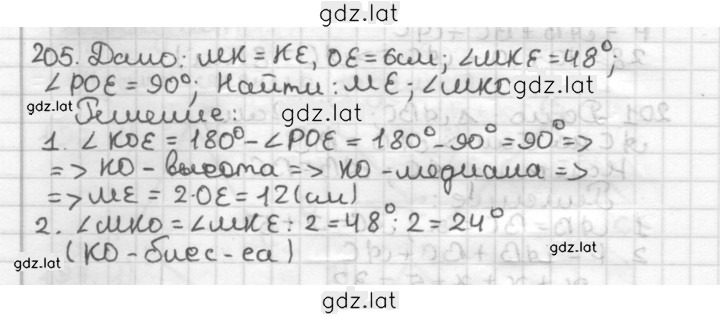 gdz.lat
205. Дано: МК = КЕ, ОЕ = 6см; ∠МКЕ = 48°;
∠РОЕ = 90°; Найти: МЕ; ∠МКО
gdz.lat
gdz.lat
Решение:
gdz.lat
1. ∠КОЕ = 180° - ∠РОЕ = 180° - 90° = 90° =>
=> КО - высота => КО - медиана =>
=> МЕ = 2·ОЕ = 12 (см)
2. ∠МКО = ∠МКЕ : 2 = 48° : 2 = 24°
(КО - биес - са)
gdz.lat
gdz.lat
gdz.lat